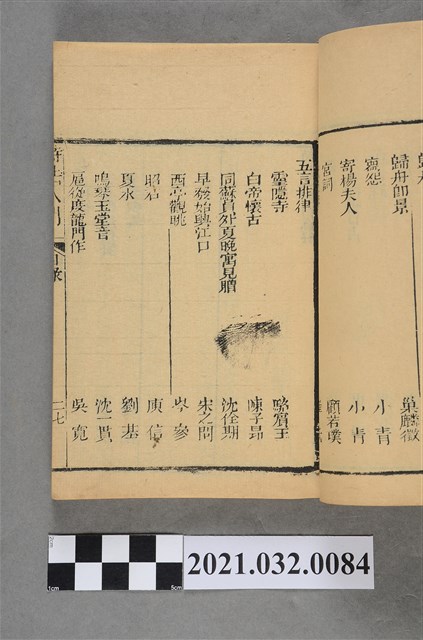 歸舟即景 巢麟徵
寄怨 小青
寄楊夫人 小青
宮詞 顧若璞
五言排律
靈隱寺 駱賓王
白帝懷古 陳子昂
同蘇員外夏晚寓見贈 沈佺期
早發始興江口 宋之問
西亭觀眺 岑參
昭君 庾信
夏永 劉基
鳴琴玉堂音 沈一貫
扈從度龍門作 吳寬
目錄 二七
2021.032.0084
1cm 5cm